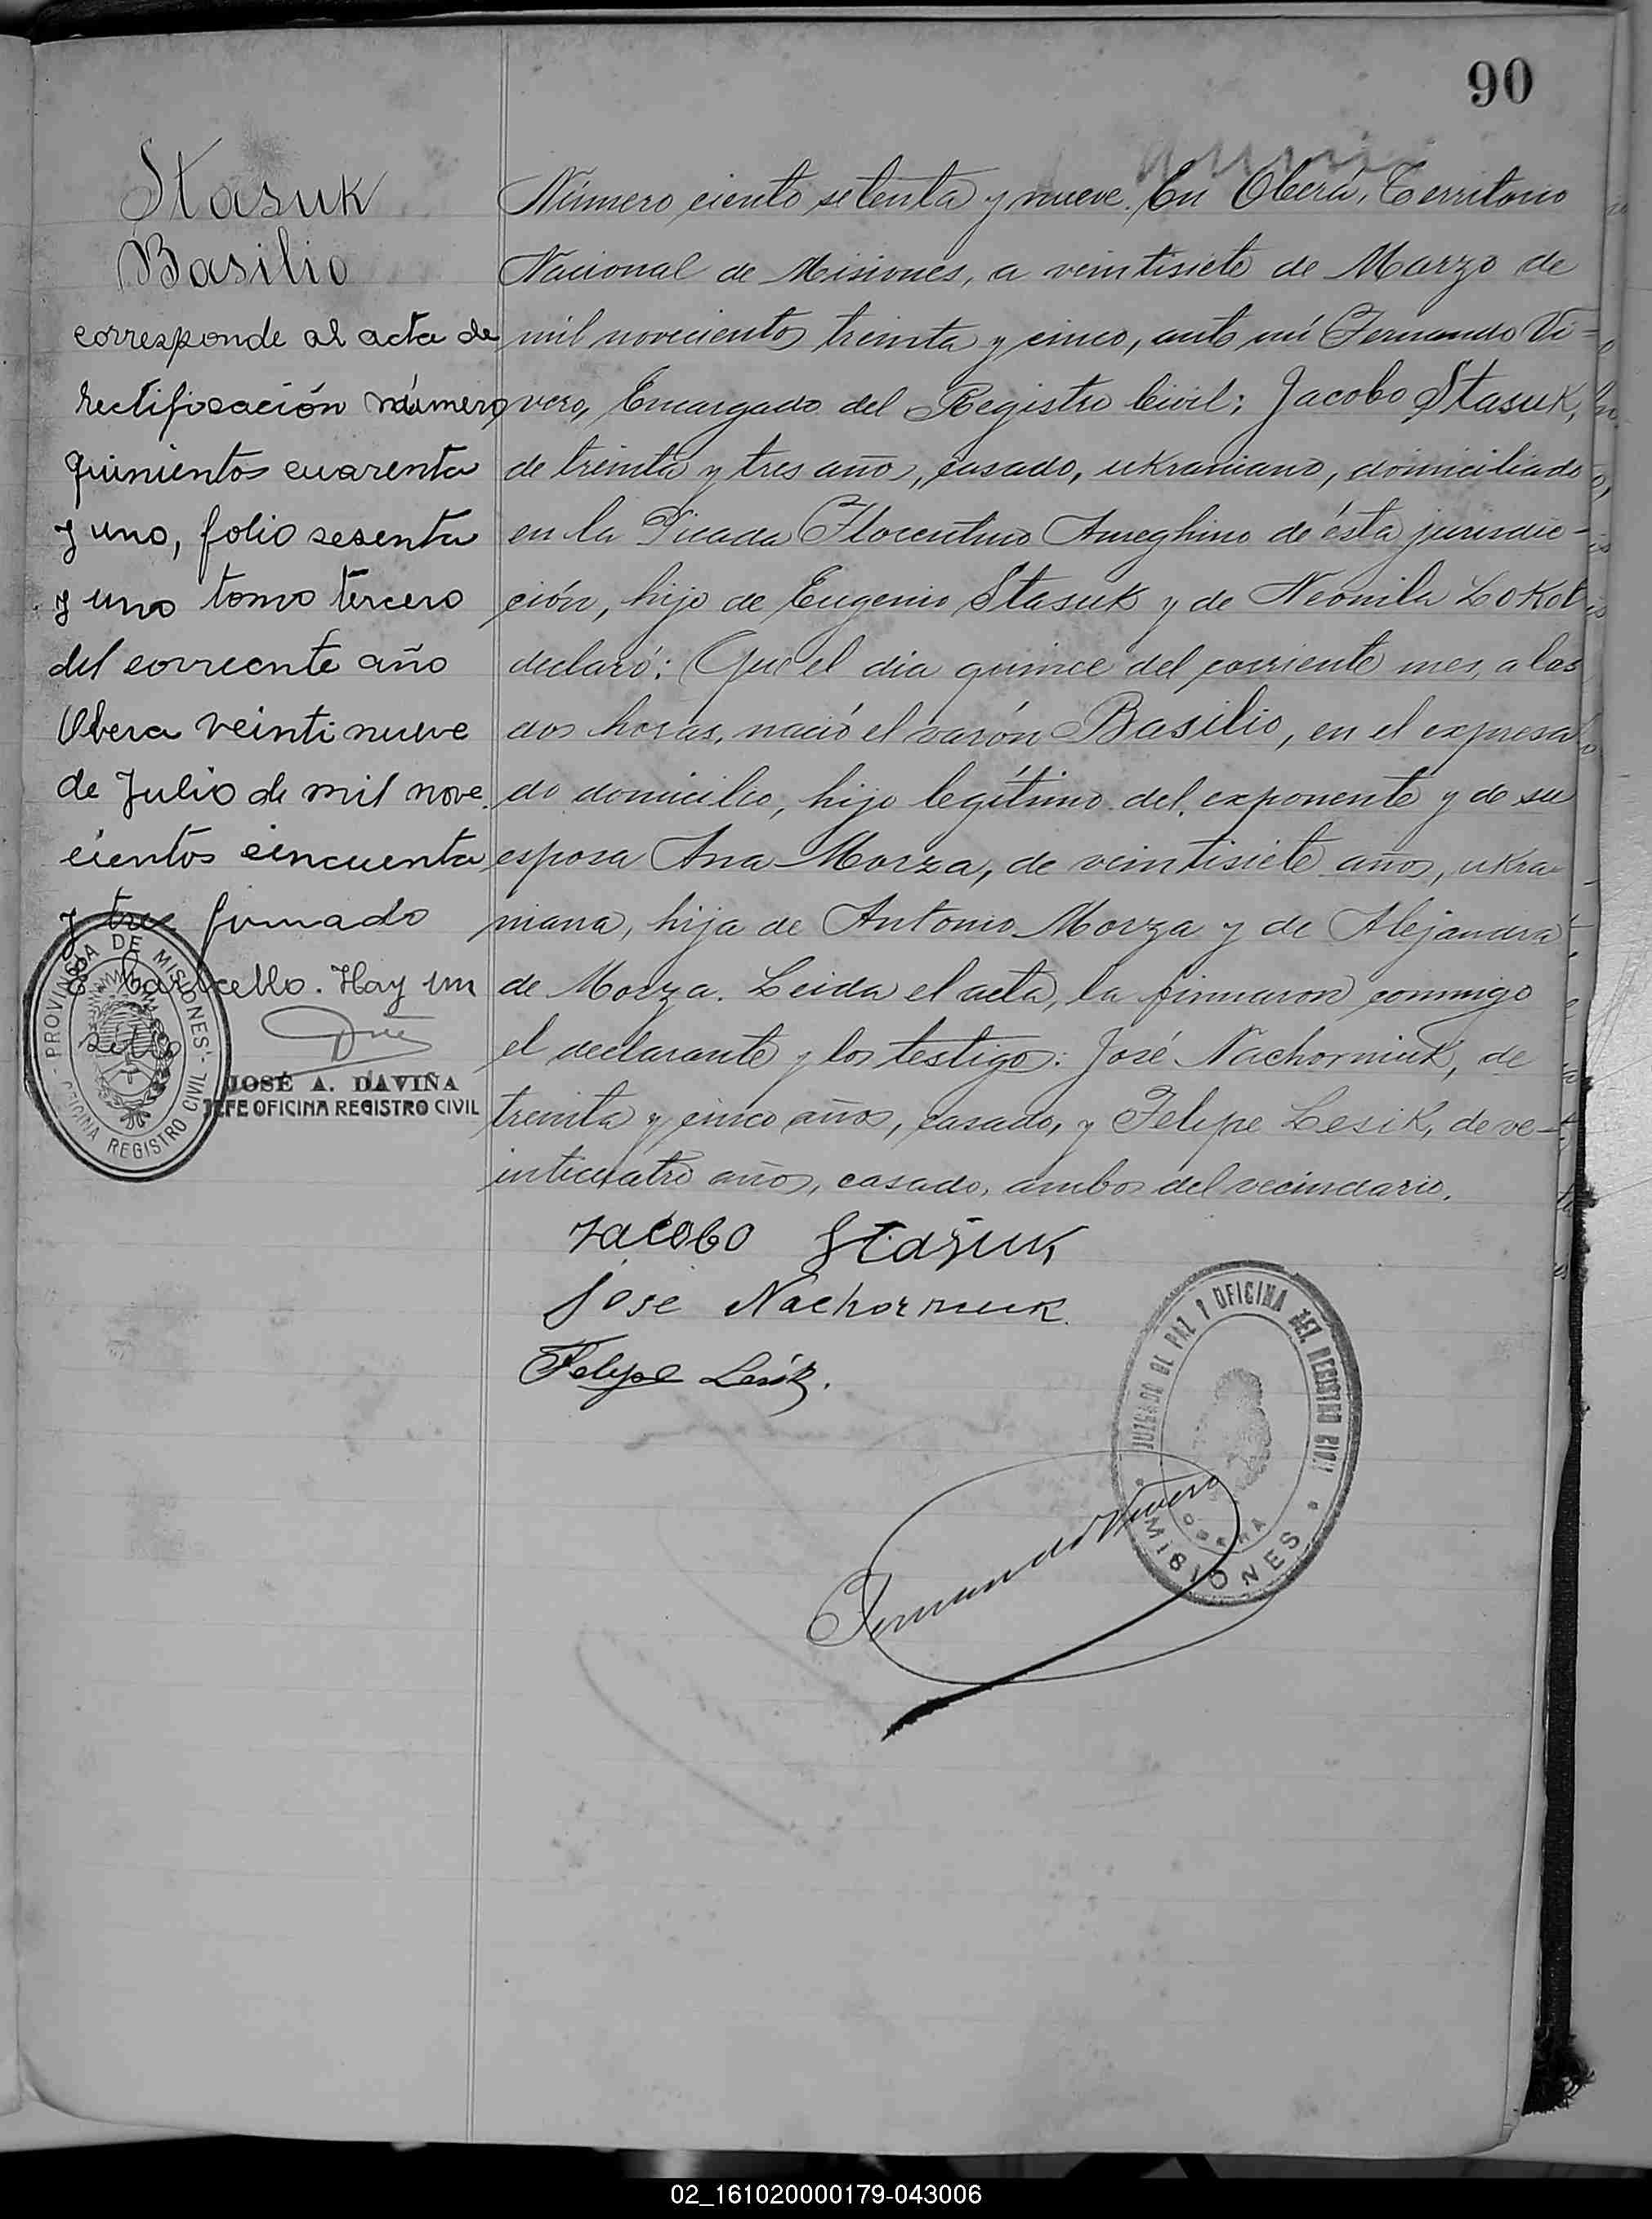 90
Stasuk
Basilio
corresponde al acta de
rectificación número
quinientos cuarenta
y uno, folio sesenta
y uno tomo tercero
del corriente año
Obera veintinueve
de Julio de mil nove
cientos cincuenta
y tres firmado
Hay un
sello
PROVINCIA DE MISIONES
OFICINA REGISTRO CIVIL
JOSÉ A. DAVIÑA
JEFE OFICINA REGISTRO CIVIL
Número ciento setenta y nueve. En Oberá, Territorio
Nacional de Misiones, a veintisiete de Marzo de
mil novecientos treinta y cinco, ante mí Fernando Vi-
vero, Encargado del Registro Civil; Jacobo Stasuk,
de treinta y tres años, casado, ukraniano, domiciliado
en la Picada Florentino Ameghino de ésta jurisdic-
ción, hijo de Eugenio Stasuk y de Neonila Lokot
declaró: Que el dia quince del corriente mes, a las
dos horas, nació el varón Basilio, en el expresa
do domicilio, hijo legítimo del exponente y de su
esposa Ana Morza, de veintisiete años, ukra-
niana, hija de Antonio Morza y de Alejandra
de Morza. Leida el acta, la firmaron conmigo
el declarante y los testigos: José Nachorniuk, de
treinta y cinco años, casado, y Felipe Lesik, de ve-
inticuatro años, casado, ambos del vecindario.
Jacobo Stasuk
José Nachorniuk.
Felipe Lesik.
JUZGADO DE PAZ Y OFICINA DEL REGISTRO CIVIL
OBERA
MISIONES
Fernando Vivero
02_161020000179-043006